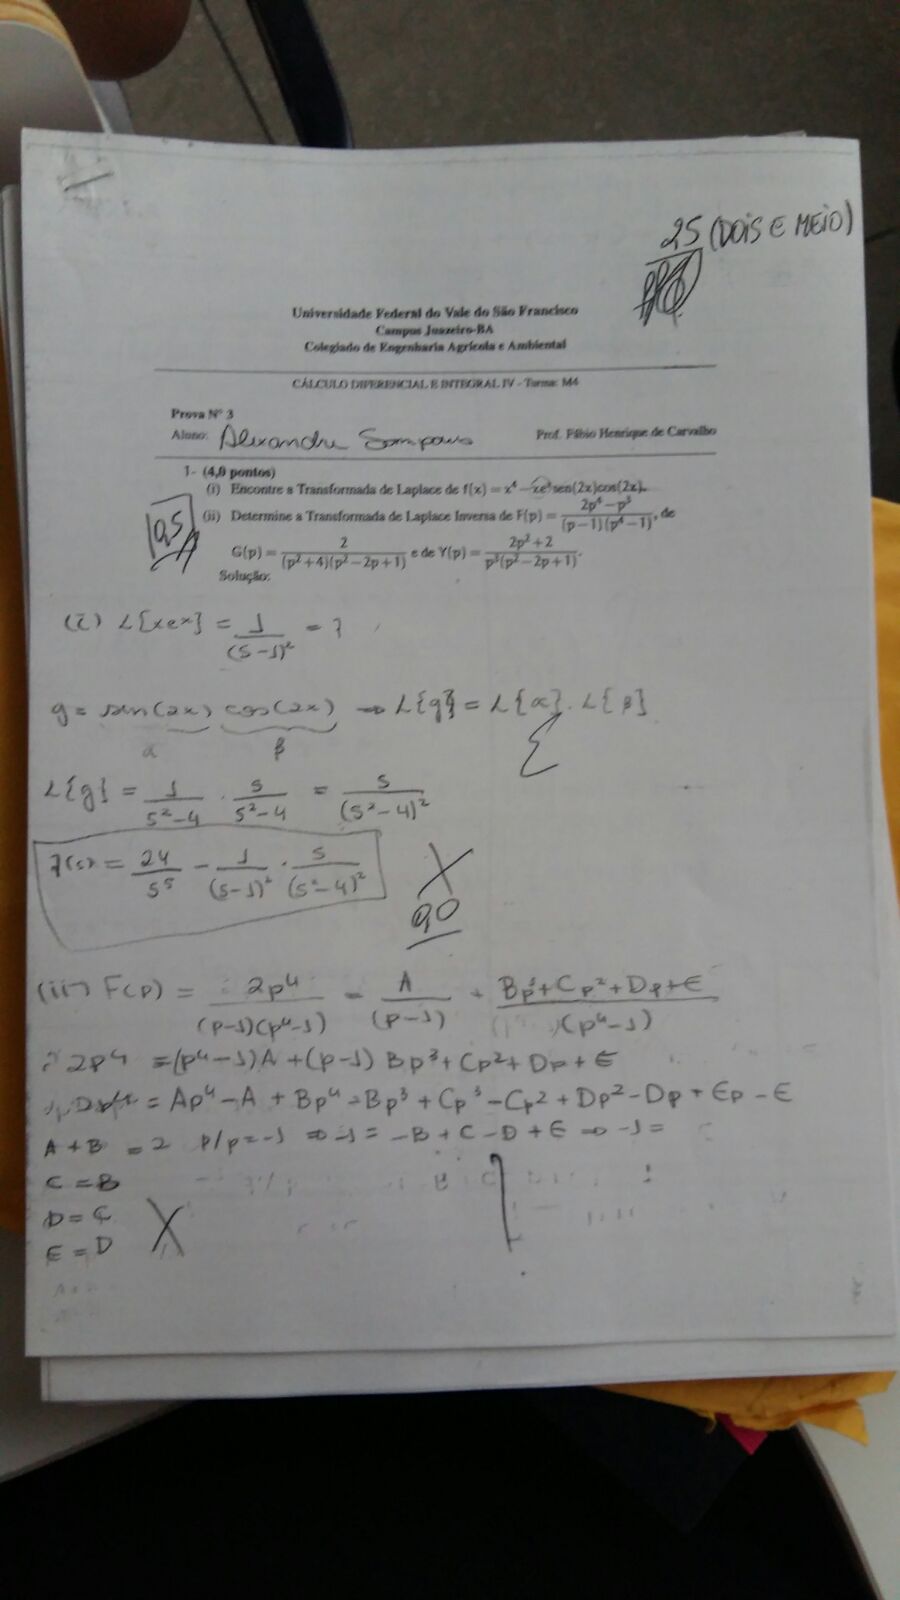 25 (DOIS E MEIO)
Universidade Federal do Vale do São Francisco
Campus Juazeiro-BA
Colegiado de Engenharia Agrícola e Ambiental
CÁLCULO DIFERENCIAL E INTEGRAL IV - Turma: M4
Prova Nº 3
Aluno: Alexandre Sampaio Prof. Fábio Henrique de Carvalho
1- (4,0 pontos)
(i) Encontre a Transformada de Laplace de f(x) = x⁴ − xeˣsen(2x)cos(2x).
0,5
(ii) Determine a Transformada de Laplace Inversa de F(p) = (2p⁴ − p³)/((p−1)(p⁴−1)), de
G(p) = 2/((p²+4)(p²−2p+1)) e de Y(p) = (2p²+2)/(p³(p²−2p+1)).
Solução:
(i) L{xeˣ} = 1/(s−1)² = 7
g = sen(2x) cos(2x) ⇒ L{g} = L{α}. L{β}
α β
L{g} = 1/(s²−4) . s/(s²−4) = s/(s²−4)²
7(s) = 24/s⁵ − 1/(s−1)² . s/(s²−4)²
0,0
(ii) F(p) = 2p⁴/((p−1)(p⁴−1)) = A/(p−1) + (Bp³+Cp²+Dp+E)/(p⁴−1)
2p⁴ = (p⁴−1)A + (p−1) Bp³+Cp²+Dp+E
= Ap⁴−A + Bp⁴−Bp³ + Cp³−Cp² + Dp²−Dp + Ep − E
A + B = 2 p/p=−1 ⇒ −1 = −B + C − D + E ⇒ −1 =
C = B
D = C
E = D